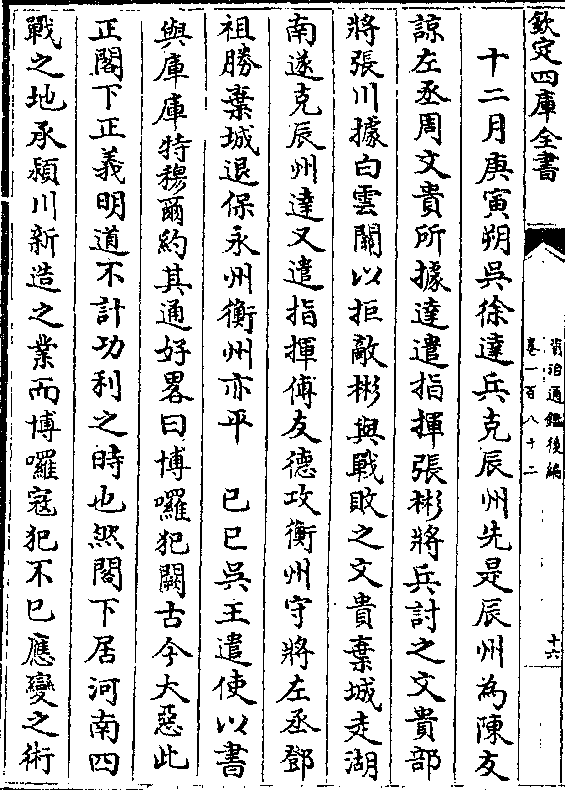 欽定四庫全書
資治通鑑後編
卷一百八十二
十六
十二月庚寅朔吳徐達兵克辰州先是辰州為陳友
諒左丞周文貴所據達遣指揮張彬將兵討之文貴部
將張川據白雲關以拒敵彬與戰敗之文貴棄城走湖
南遂克辰州達又遣指揮傅友德攻衡州守將左丞鄧
祖勝棄城退保永州衡州亦平　己巳吳王遣使以書
與庫庫特穆爾約其通好畧曰博囉犯闕古今大惡此
正閣下正義明道不計功利之時也然閣下居河南四
戰之地承潁川新造之業而博囉寇犯不已應變之術